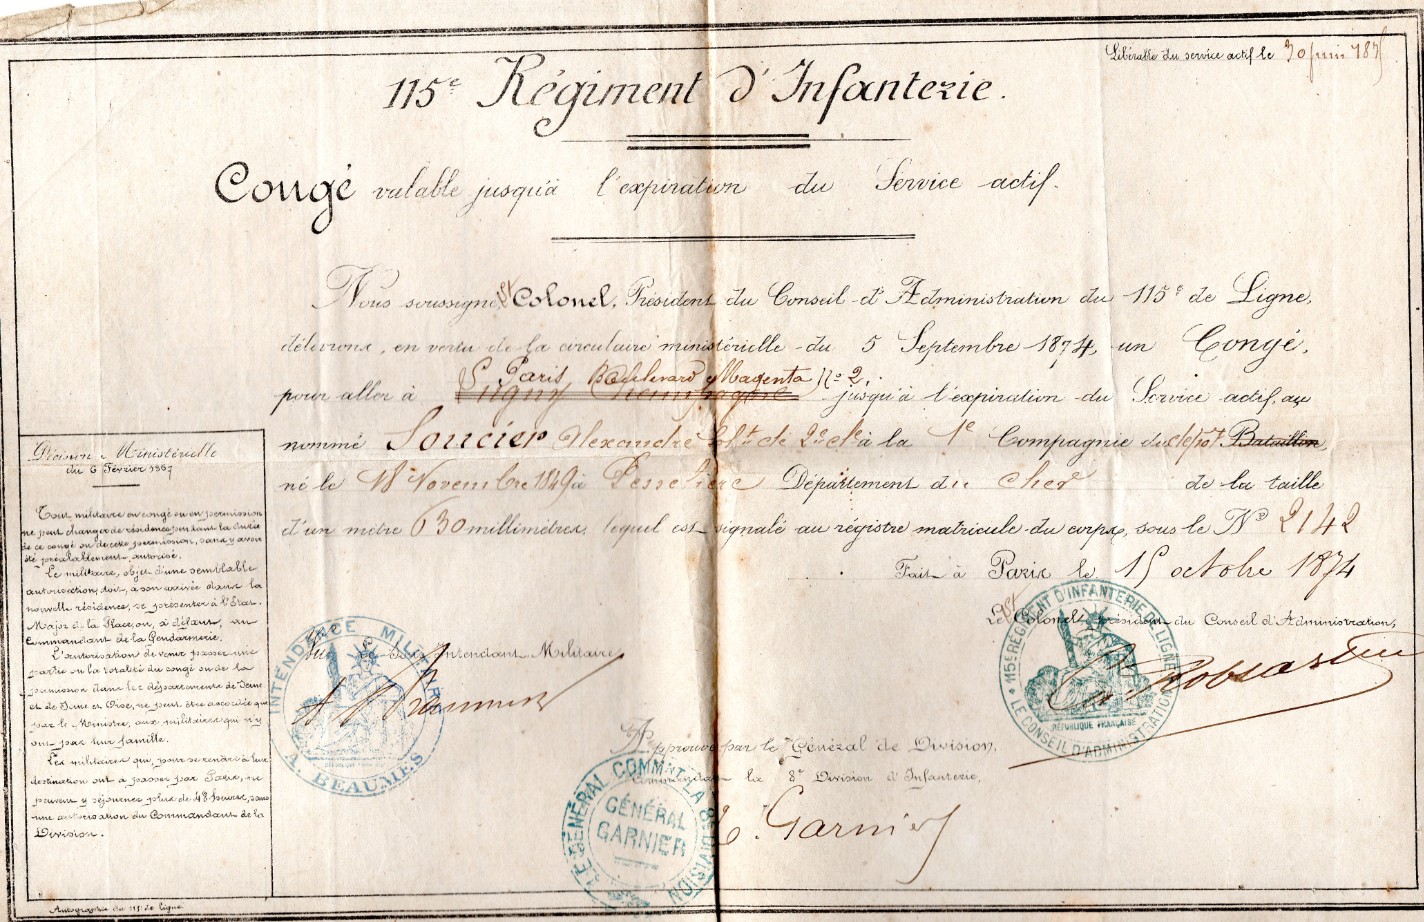 Libérable du service actif le 30 juin 187
115e Régiment d'Infanterie.
Congé valable jusqu'à l'expiration du Service actif.
Nous soussigné, Lt Colonel, Président du Conseil d'Administration du 115e de Ligne,
délivrons, en vertu de la circulaire ministérielle du 5 Septembre 1874, un Congé,
Paris Boulevard Magenta No 2,
pour aller à jusqu'à l'expiration du Service actif, au
nommé Soucier Alexandre de 2e cl à la 1e Compagnie du dépôt Bataillon,
né le 18 Novembre 1849 à Département du Cher de la taille
d'un mètre 630 millimètres, lequel est signalé au régistre matricule du corps, sous le No 2142
Fait à Paris le 15 octobre 1874
Le Lt Colonel président du Conseil d'Administration,
115e RÉGIMENT D'INFANTERIE DE LIGNE
LE CONSEIL D'ADMINISTRATION
RÉPUBLIQUE FRANÇAISE
Vu Le Sous Intendant Militaire
INTENDENCE MILITAIRE
A. BEAUMES
Approuvé par le Général de Division,
Commandant la 8e Division d'Infanterie,
LE GÉNÉRAL COMMt LA 8e DIVISION
GÉNÉRAL
GARNIER
Garnier
Décision Ministérielle
du 6 Février 1867
Tout militaire en congé ou en permission
ne peut changer de résidence pendant la durée
de ce congé ou de cette permission, sans y avoir
été préalablement autorisé.
Le militaire, objet d'une semblable
autorisation, doit, à son arrivée dans la
nouvelle résidence, se présenter à l'Etat-
Major de la Place, ou, à défaut, au
Commandant de la Gendarmerie.
L'autorisation de venir passer une
partie ou la totalité du congé ou de la
permission dans les départements de Seine
et de Seine et Oise, ne peut être accordée que
par le Ministre, aux militaires qui n'y
ont pas leur famille.
Les militaires qui, pour se rendre à leur
destination ont à passer par Paris, ne
peuvent y séjourner plus de 48 heures, sans
une autorisation du Commandant de la
Division.
Autographie du 115e de ligne